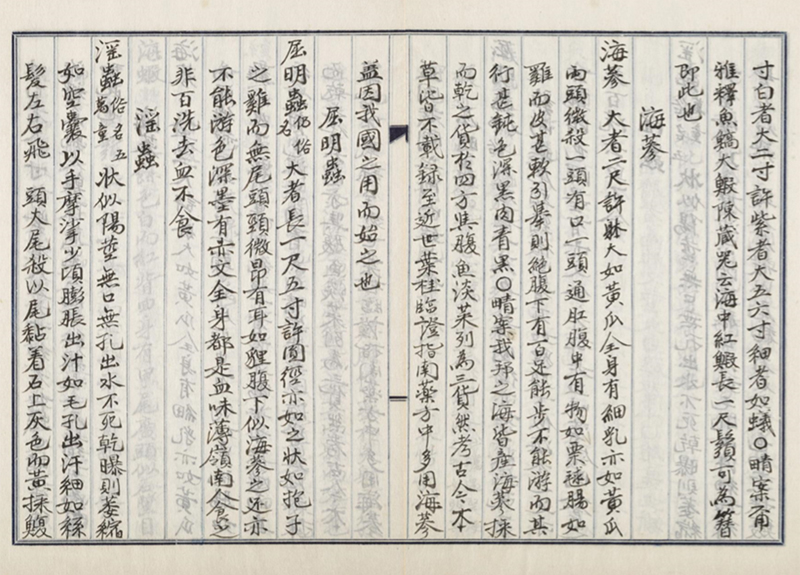 寸白者大二寸許紫者大五六寸細者如蟻〇晴案爾
雅釋魚鰝大鰕陳藏器云海中紅鰕長一尺鬚可為簪
即此也
海蔘
海蔘 大者二尺許躰大如黃瓜全身有細乳亦如黃瓜
兩頭微殺一頭有口一頭通肛腹中有物如栗毬腸如
雞而皮甚軟引擧則絶腹下有百足能步不能游而其
行甚鈍色深黑肉青黑〇晴案我邦之海皆産海蔘採
而乾之貨於四方與腹魚淡菜列為三貨然考古今本
草皆不載録至近世葉桂臨證指南藥方中多用海蔘
蓋因我國之用而始之也
屈明蟲
屈明蟲俗仍名 大者長一尺五寸許圓徑亦如之狀如抱子
之雞而無尾頭頸微昂有耳如貍腹下似海蔘之足亦
不能游色深黑有赤文全身都是血味薄嶺南人食之
非百洗去血不食
淫蟲
淫蟲俗名五萬童 狀似陽莖無口無孔出水不死乾曝則萎縮
如空囊以手摩挲少頃膨脹出汁如毛孔出汗細如絲
髮左右飛 頭大尾殺以尾黏着石上灰色而黃採鰒